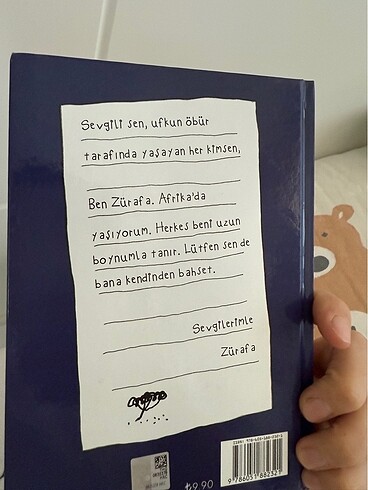 Sevgili sen, ufkun öbür
tarafında yaşayan her kimsen,
Ben Zürafa. Afrika'da
yaşıyorum. Herkes beni uzun
boynumla tanır. Lütfen sen de
bana kendinden bahset.
Sevgilerimle
Zürafa
₺9.90